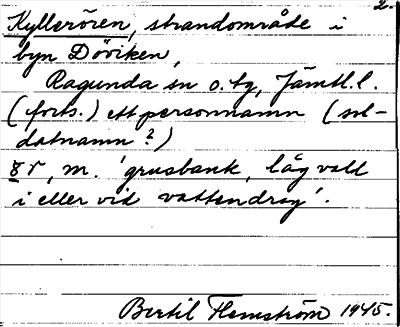 2.
Kyllerören, strandområde i
byn Döviken,
Ragunda sn o. tg, Jämtl. l.
(forts.) ett personnamn (sol-
datnamn?)
ör, m. 'grusbank, låg vall
i eller vid vattendrag'.
Bertil Flemström 1945.